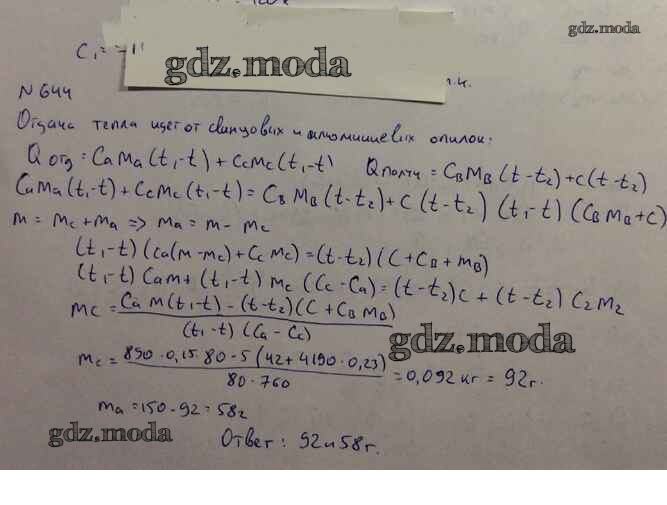 gdz.moda
C₁ =
gdz.moda
N 644
Отдача тепла идет от свинцовых и алюминиевых опилок:
Qотд = CаMа(t₁-t) + CсMс(t₁-t) Qполуч = CвMв(t-t₂)+c(t-t₂)
CаMа(t₁-t)+CсMс(t₁-t) = Cв Mв(t-t₂)+C(t-t₂) (t₁-t)(CвMв+c)
m = mс+mа => mа = m - mс
(t₁-t)(cа(m-mс)+Cс Mс)=(t-t₂)(C+Cв+mв)
(t₁-t) Cаm+(t₁-t) mс (Cс-Cа)=(t-t₂)c + (t-t₂) C₂M₂
mс = Cа M(t₁-t) - (t-t₂)(C + Cв Mв)
(t₁-t) (Cа - Cс)
gdz.moda
mс = 890·0,15·80-5(42+4190·0,23) = 0,092 кг = 92г.
80·760
mа = 150-92 = 58г
gdz.moda
Ответ: 92 и 58г.